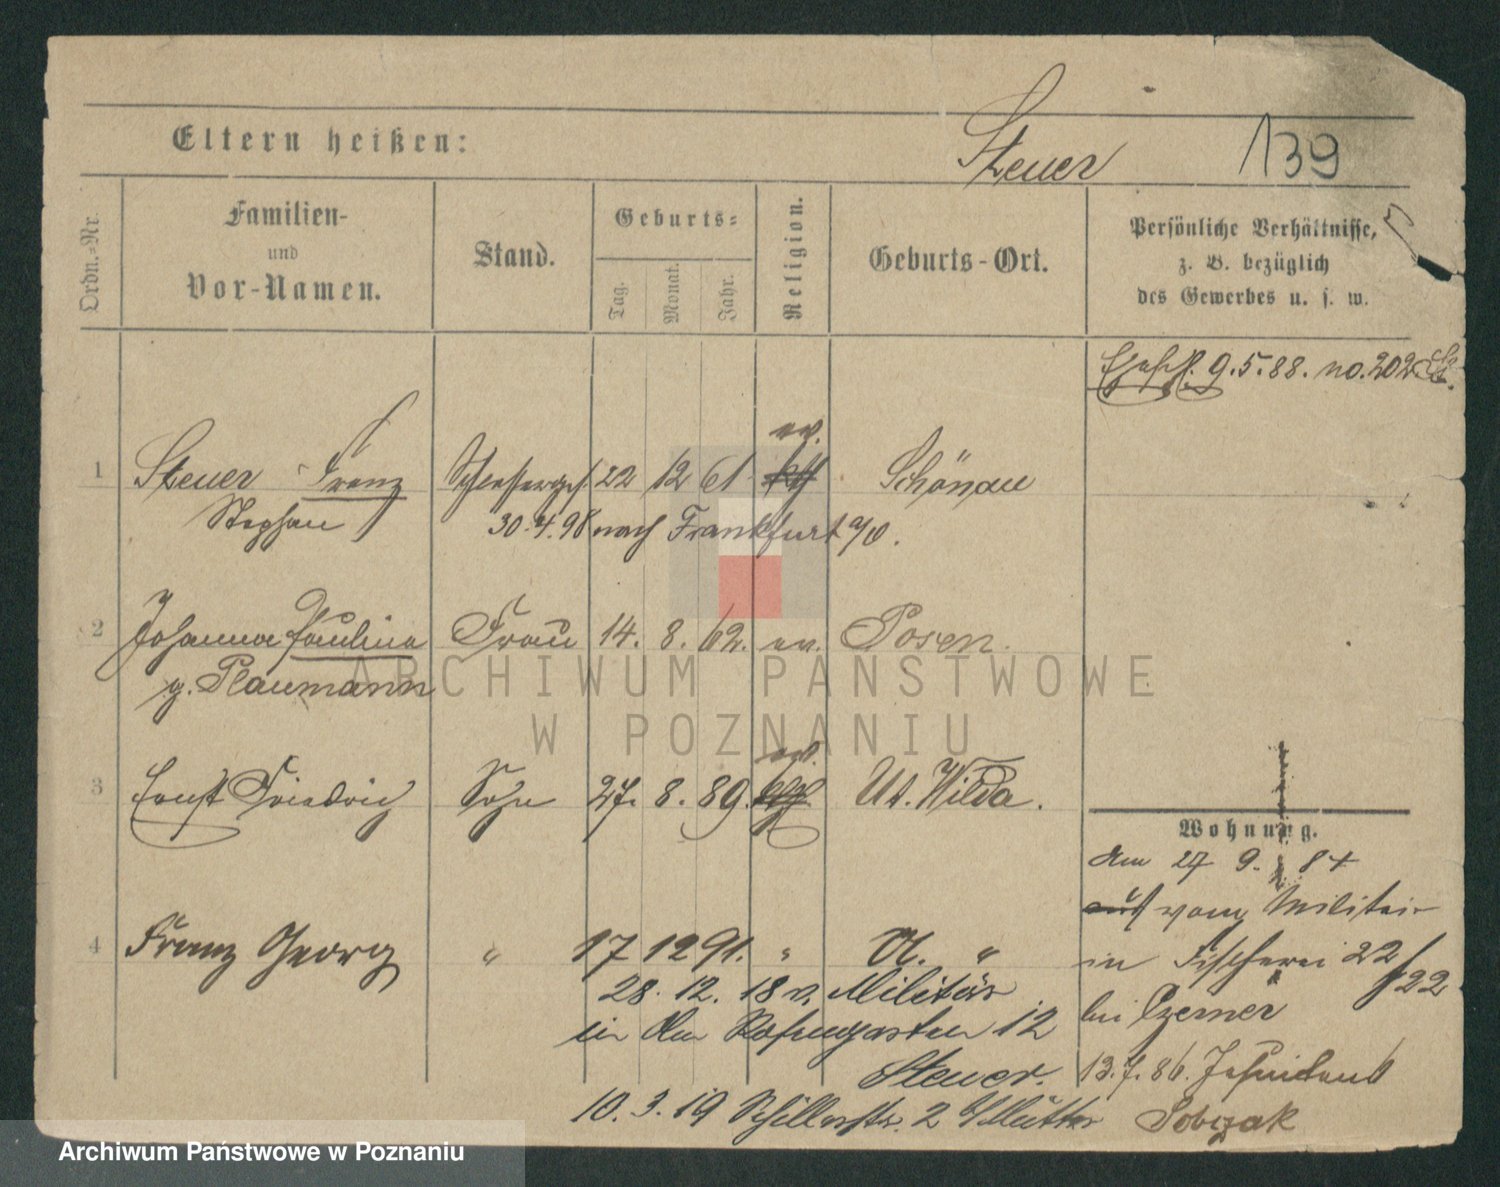 Steuer 139
Eltern heißen:
Ordn.-Nr.
Familien-
und
Vor-Namen.
Stand.
Geburts-
Tag.
Monat.
Jahr.
Religion.
Geburts-Ort.
Persönliche Verhältnisse,
z. B. bezüglich
des Gewerbes u. s. w.
9.5.88. no. 202
ev.
1 Steuer Franz Schlosserges. 22 12 61 kth Schönau
Stephan 30.4.98 nach Frankfurt a/O.
2 Johanna Paulina Frau 14. 8. 62. ev. Posen.
g. Plaumann
ev.
3 Ernst Friedrich Sohn 27. 8. 89. kth Ut. Wilda.
Wohnung.
Am 27 9. 84
auf vom Militair
4 Franz Georg " 17 12 91. " U. "
in Fischerei 22/22
28. 12. 18 v. Militär
bei
in Am Rosengarten 12
Steuer.
13.7.86. Jesuitens 6
10. 3. 19 Schillerstr. 2 b/Mutter
Sobczak
ARCHIWUM PAŃSTWOWE
W POZNANIU
Archiwum Państwowe w Poznaniu